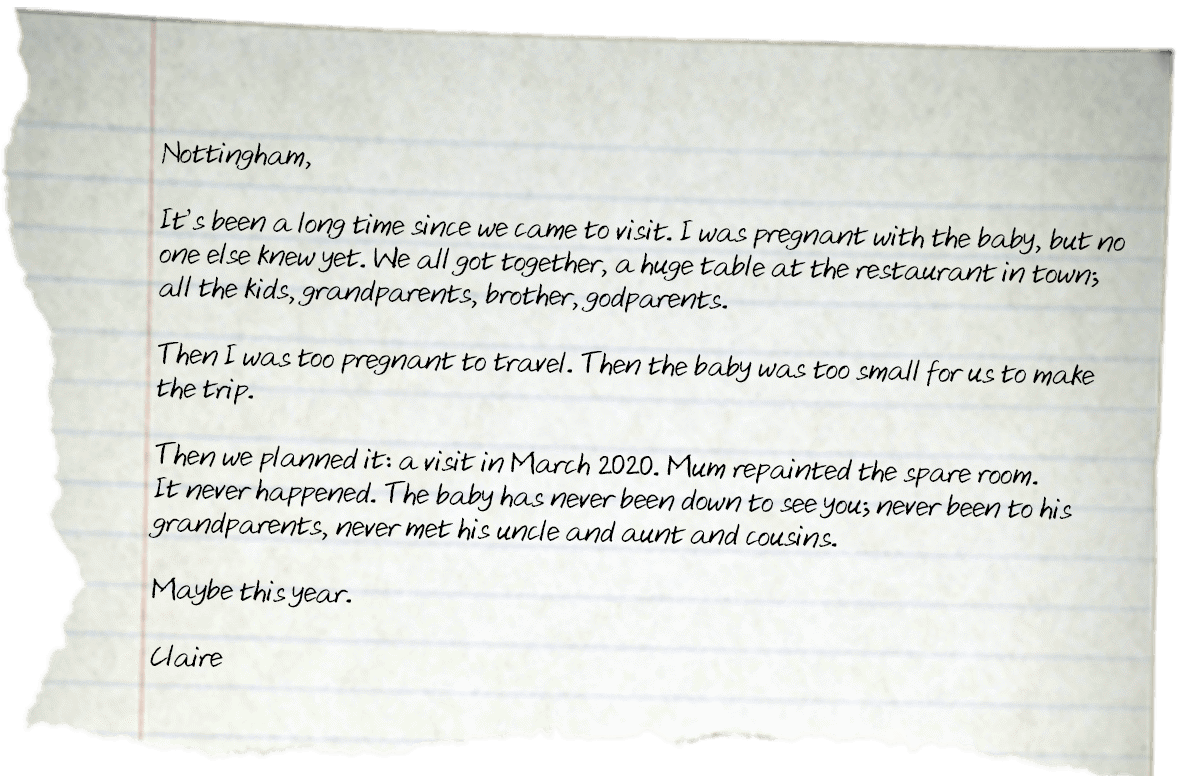 Nottingham,
It's been a long time since we came to visit. I was pregnant with the baby, but no
one else knew yet. We all got together, a huge table at the restaurant in town;
all the kids, grandparents, brother, godparents.
Then I was too pregnant to travel. Then the baby was too small for us to make
the trip.
Then we planned it: a visit in March 2020. Mum repainted the spare room.
It never happened. The baby has never been down to see you; never been to his
grandparents, never met his uncle and aunt and cousins.
Maybe this year.
Claire